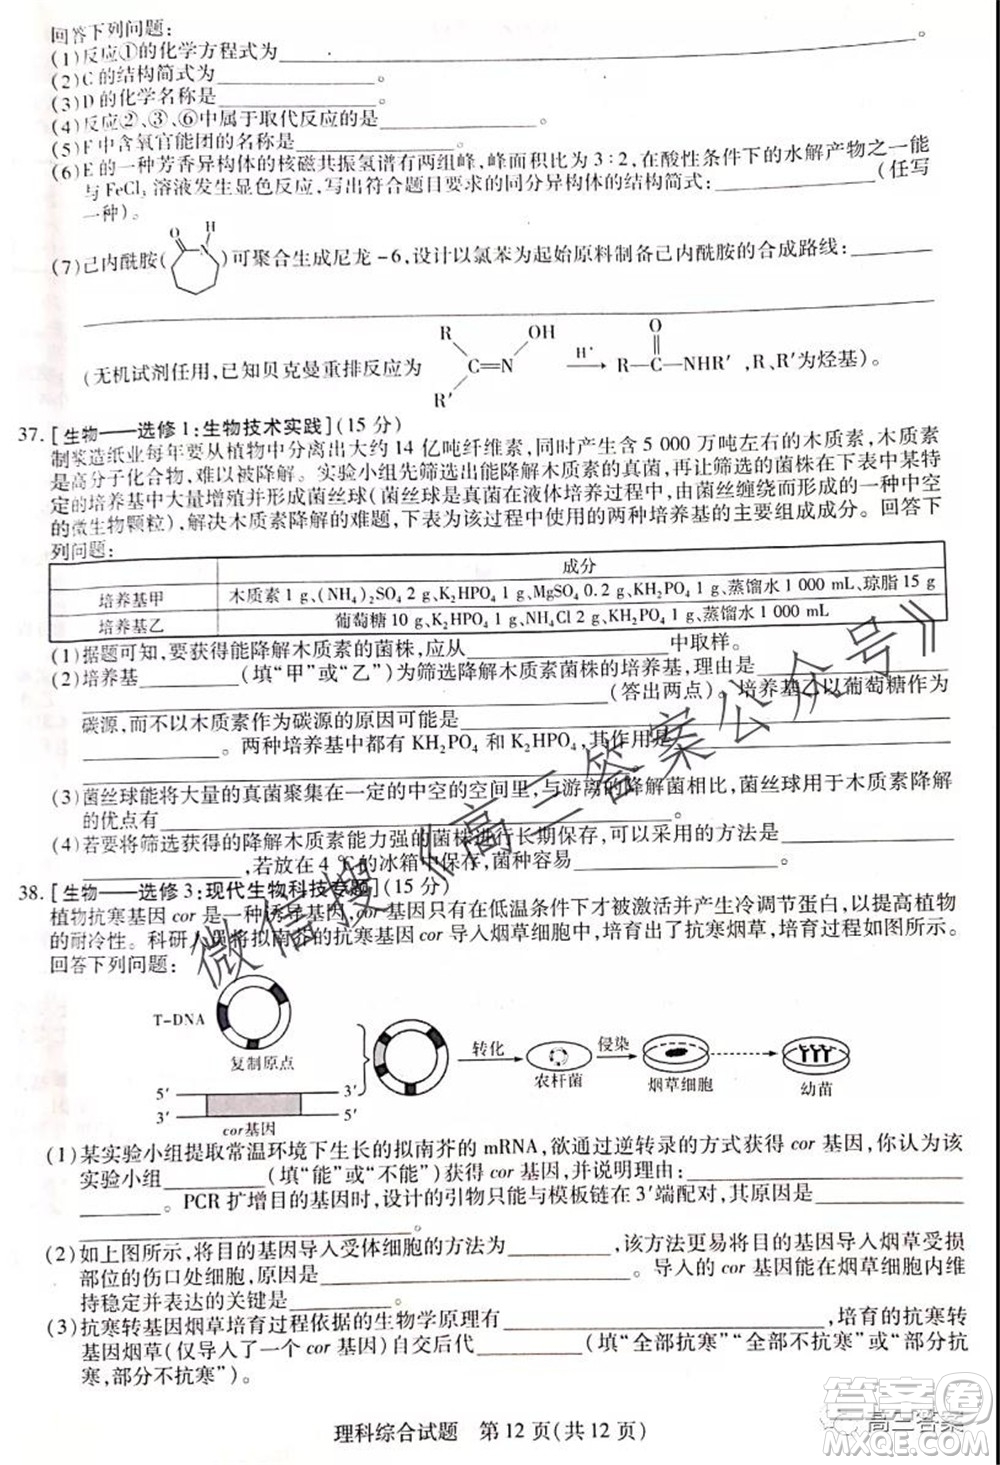 回答下列问题：
(1)反应①的化学方程式为____________。
(2)C的结构简式为____________
(3)D的化学名称是____________
(4)反应②、③、⑥中属于取代反应的是____________
(5)F中含氧官能团的名称是____________
(6)E的一种芳香异构体的核磁共振氢谱有两组峰、峰面积比为3∶2,在酸性条件下的水解产物之一能
与FeCl₃溶液发生显色反应,写出符合题目要求的同分异构体的结构简式：____________(任写
一种)。
(7)己内酰胺(
O
H
N
)可聚合生成尼龙-6,设计以氯苯为起始原料制备己内酰胺的合成路线：____________
(无机试剂任用,已知贝克曼重排反应为
R
R′
C═N
OH
H⁺
O
R—C—NHR′
,R、R′为烃基)。
37.[生物——选修1:生物技术实践](15分)
制浆造纸业每年要从植物中分离出大约14亿吨纤维素,同时产生含5 000万吨左右的木质素,木质素
是高分子化合物,难以被降解。实验小组先筛选出能降解木质素的真菌,将筛选的菌株在下表中某特
定的培养基中大量增殖并形成菌丝球(菌丝球是真菌在液体培养过程中,由菌丝缠绕而形成的中空
的微生物颗粒),解决木质素降解的难题,下表为该过程中使用的两种培养基的主要组成成分。回答下
列问题：
成分
培养基甲 木质素1 g、(NH₄)₂SO₄ 2 g、K₂HPO₄ 1 g、MgSO₄ 0.2 g、KH₂PO₄ 1 g、蒸馏水1 000 mL、琼脂15 g
培养基乙 葡萄糖10 g、K₂HPO₄ 1 g、NH₄Cl 2 g、KH₂PO₄ 1 g、蒸馏水1 000 mL
(1)据题可知,要获得能降解木质素的菌株,应从____________中取样。
(2)培养基____________(填“甲”或“乙”)为筛选降解木质素菌株的培养基,理由是____________
____________(答出两点)。培养基乙以葡萄糖作为
碳源,而不以木质素作为碳源的原因可能是____________
____________。两种培养基中都有KH₂PO₄和K₂HPO₄,其作用是____________
(3)菌丝球能将大量的真菌聚集在一定的中空的空间里,与游离的降解菌相比,菌丝球用于木质素降解
的优点有____________
(4)若要将筛选获得的降解木质素能力强的菌株进行长期保存,可以采用的方法是____________
____________,若放在4 ℃的冰箱中保存,菌种容易____________
38.[生物——选修3:现代生物科技专题](15分)
植物抗寒基因cor是一种诱导基因,cor基因只有在低温条件下才被激活并产生冷调节蛋白,以提高植物
的耐冷性。科研人员将拟南芥的抗寒基因cor导入烟草细胞中,培育出了抗寒烟草,培育过程如图所示。
回答下列问题：
T-DNA
复制原点
5′
3′
3′
5′
cor基因
转化
农杆菌
侵染
烟草细胞
幼苗
(1)某实验小组提取常温环境下生长的拟南芥的mRNA,欲通过逆转录的方式获得cor基因,你认为该
实验小组____________(填“能”或“不能”)获得cor基因,理由是____________
____________。PCR扩增目的基因时,设计的引物只能与模板链在3′端配对,其原因是____________
(2)如上图所示,将目的基因导入受体细胞的方法为____________,该方法更易将目的基因导入烟草受损
部位的伤口处细胞,原因是____________。导入的cor基因能在烟草细胞内维
持稳定并表达的关键是____________。
(3)抗寒转基因烟草培育过程依据的生物学原理有____________,培育的抗寒转
基因烟草(仅导入了一个cor基因)自交后代____________(填“全部抗寒”“全部不抗寒”或“部分抗
寒,部分不抗寒”)。
理科综合试题 第12页(共12页)
微信搜《高三答案公众号》
答案圈
高三答案
MXQE.COM